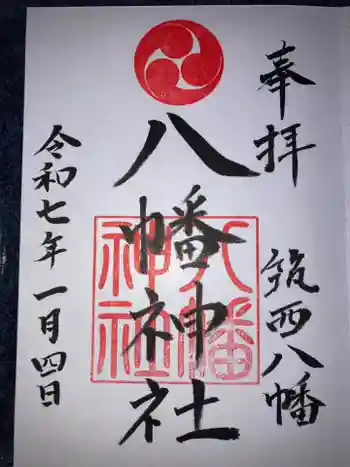 奉拝
筑西八幡
八幡神社
八幡神社
令和七年一月四日